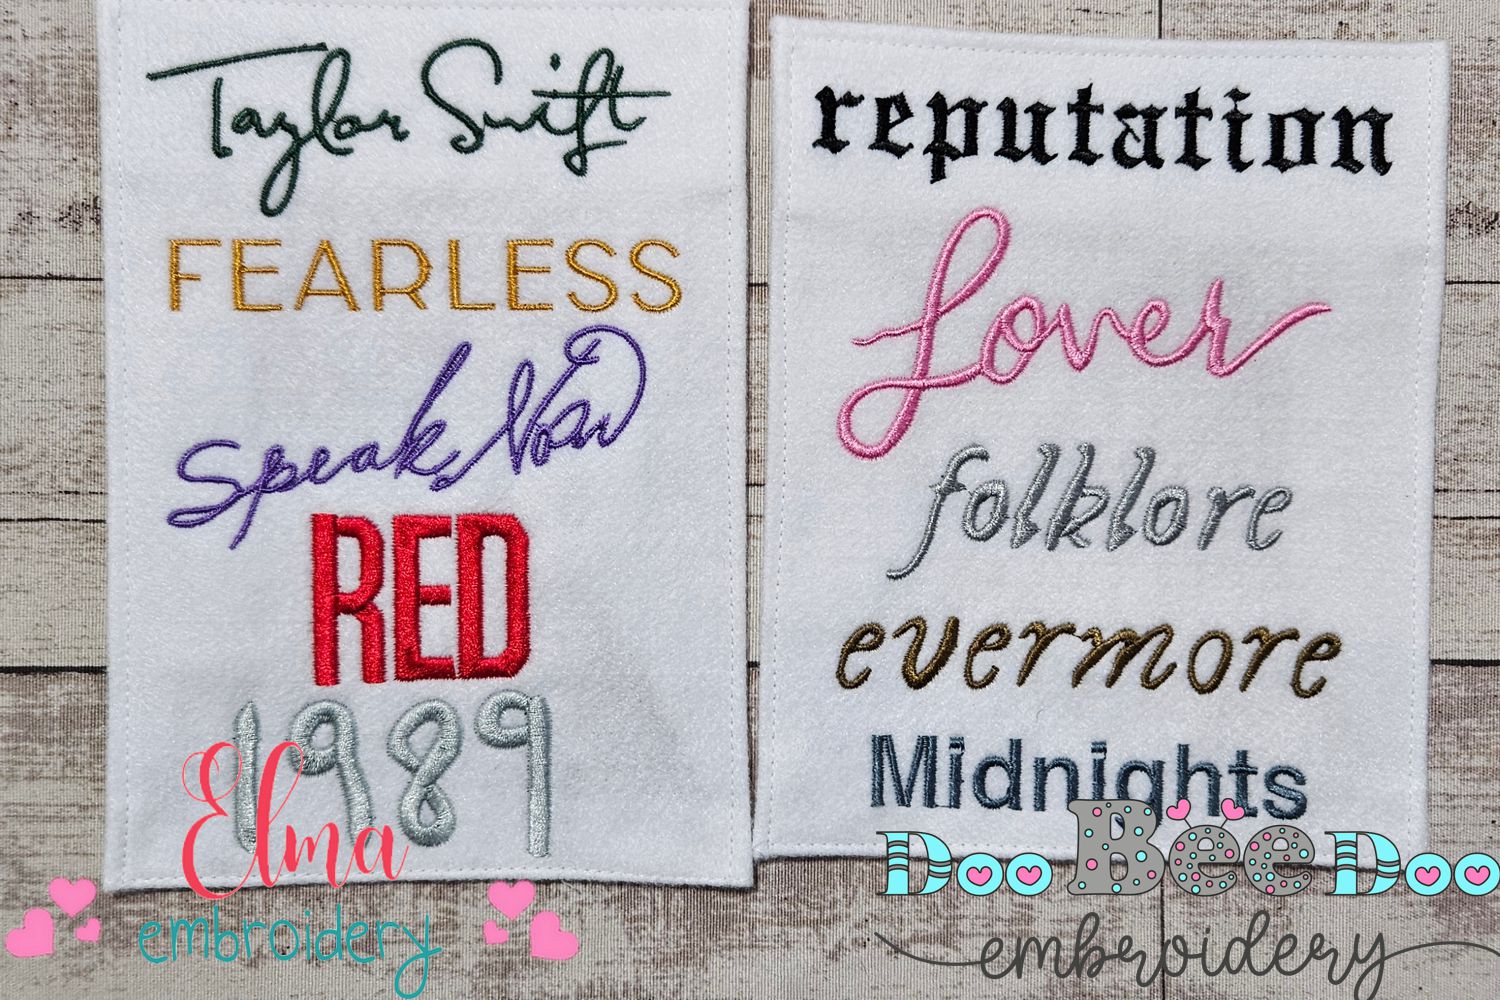 Taylor Swift
FEARLESS
Speak Now
RED
1989
Elma
embroidery
reputation
Lover
folklore
evermore
Midnights
DooBeeDoo
embroidery